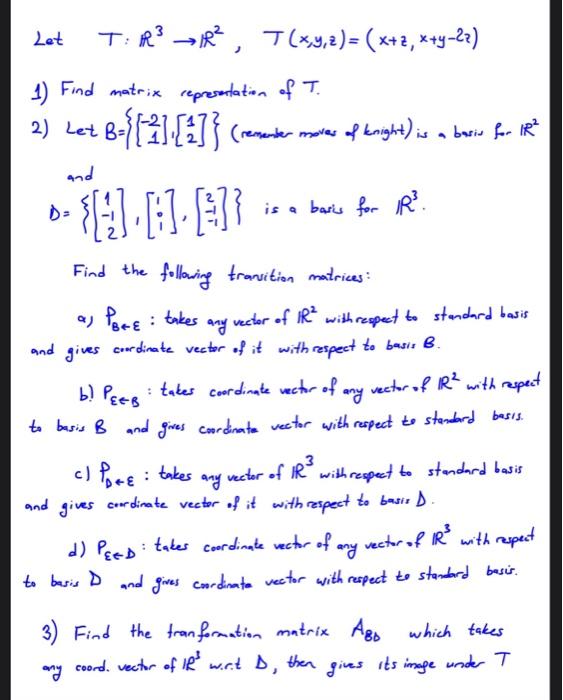 Let T: ℝ³ → ℝ², T(x,y,z) = (x+z, x+y-2z)
1) Find matrix representation of T.
2) Let B={[-2 1], [1 2]} (remember moves of knight) is a basis for ℝ²
and
D= {[1 -1 2], [1 0 1], [2 -1 -1]} is a basis for ℝ³.
Find the following transition matrices:
a) P_B←E : takes any vector of ℝ² with respect to standard basis
and gives coordinate vector of it with respect to basis B.
b) P_E←B : takes coordinate vector of any vector of ℝ² with respect
to basis B and gives coordinate vector with respect to standard basis.
c) P_D←E : takes any vector of ℝ³ with respect to standard basis
and gives coordinate vector of it with respect to basis D.
d) P_E←D : takes coordinate vector of any vector of ℝ³ with respect
to basis D and gives coordinate vector with respect to standard basis.
3) Find the tranformation matrix A_BD which takes
any coord. vector of ℝ³ w.r.t D, then gives its image under T